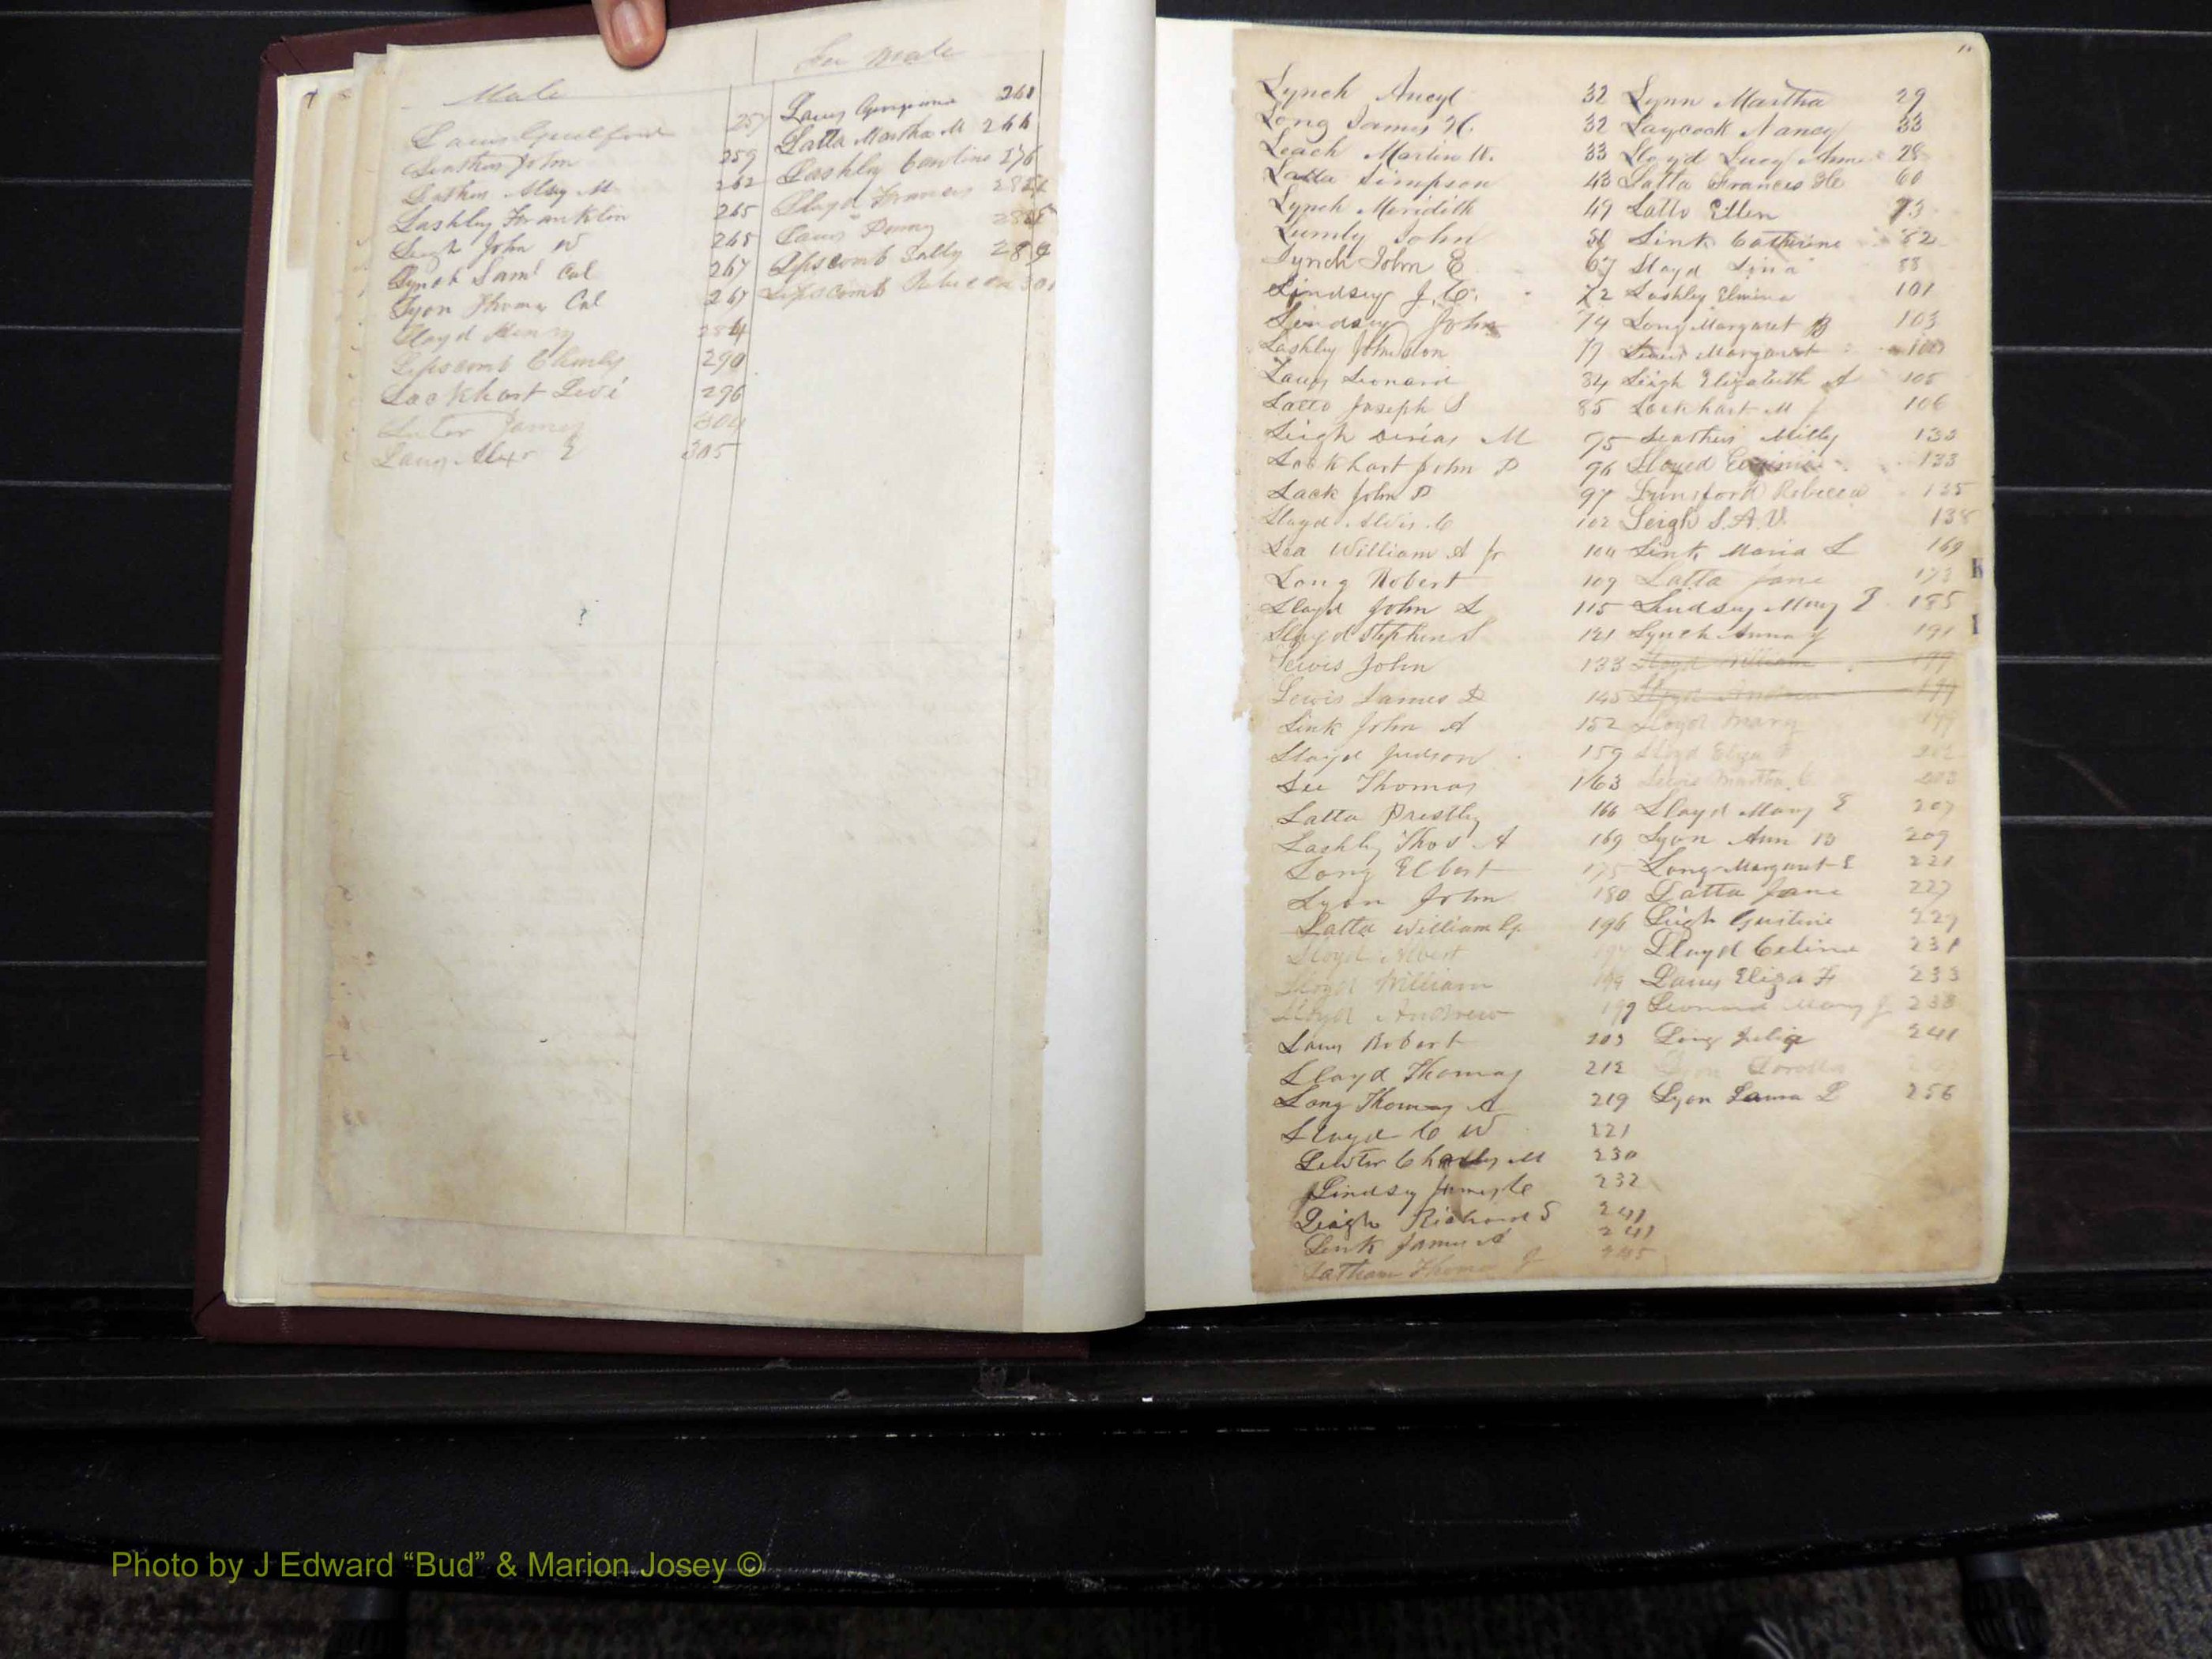 Male
Fee Male
Laws Guilford 257
Leathers John 259
Leathers Alsy M 262
Lashley Franklin 265
Leigh John W 265
Lynch Saml Col 267
Lyon Thomas Col 267
Lloyd Henry 284
Lipscomb Charles 290
Lockhart Levi 296
Luter James 304
Laws Alex E 305
Laws Georgiana 261
Latta Martha M 266
Lashley Caroline 276
Lloyd Frances
Laws Penny
Lipscomb Sally 289
Lipscomb Rebecca 301
Lynch Ancyl 32
Long James H. 32
Leach Martin W. 33
Latta Simpson 43
Lynch Meridith 49
Lumly John
Lynch John E 67
Lindsey J. C. 72
Lindsey John 74
Lashley Johnston 77
Laws Leonard 84
Latta Joseph S 85
Leigh M 75
Lockhart John D 96
Lack John D 97
Lloyd Alvis C 102
Lea William A Jr 104
Long Robert 109
Lloyd John L 115
Lloyd Stephen S 121
Lewis John 133
Lewis James D 145
Link John A 152
Lloyd Judson 159
Lee Thomas 163
Latta Prestly 166
Lashly Thos A 169
Long Elbert 175
Lyon John 180
Latta William G. 196
Lloyd Albert 197
Lloyd William 199
Lloyd Andrew 199
Laws Robert 203
Lloyd Thomas 212
Long Thomas A 219
Lloyd C W 221
Lewter Charles M 230
Lindsey James C 232
Leigh Richard S 241
Link James A 241
Latham Thomas J 245
Lynn Martha 29
Laycock Nancy 33
Lloyd Lucy Ann 28
Latta Frances He 60
Latta Ellen 73
Link Catharine 82
Lloyd Lina 88
Lashley Elmina 101
Long Margaret B 103
Lewis Margaret
Leigh Elizabeth A 105
Lockhart M J 106
Leathers Milly 133
Lloyed 133
Lunsford Rebecca 135
Leigh S. A. V. 138
Link Maria L 169
Latta Jane 173
Lindsey Mary E 185
Lynch Anna J 191
Lloyd William 199
Lloyd Andrew 199
Lloyd Mary 199
Lloyd Eliza F 202
Lewis Martha C 203
Lloyd Mary E 207
Lyon Ann B 209
Long Margaret E 221
Latta Jane 227
Leigh Gustine 229
Lloyd Celina 231
Laws Eliza F 233
Leonard Mary J 238
Long Julia 241
Lyon Loretta
Lyon Laura L 256
Photo by J Edward “Bud” & Marion Josey ©